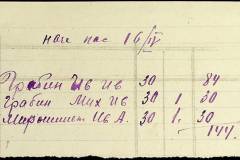 16/IV
Грабин Ив Ив 30 84
Грабин Мих Ив 30 1. 30
Ив А. 30 1. 30
144.